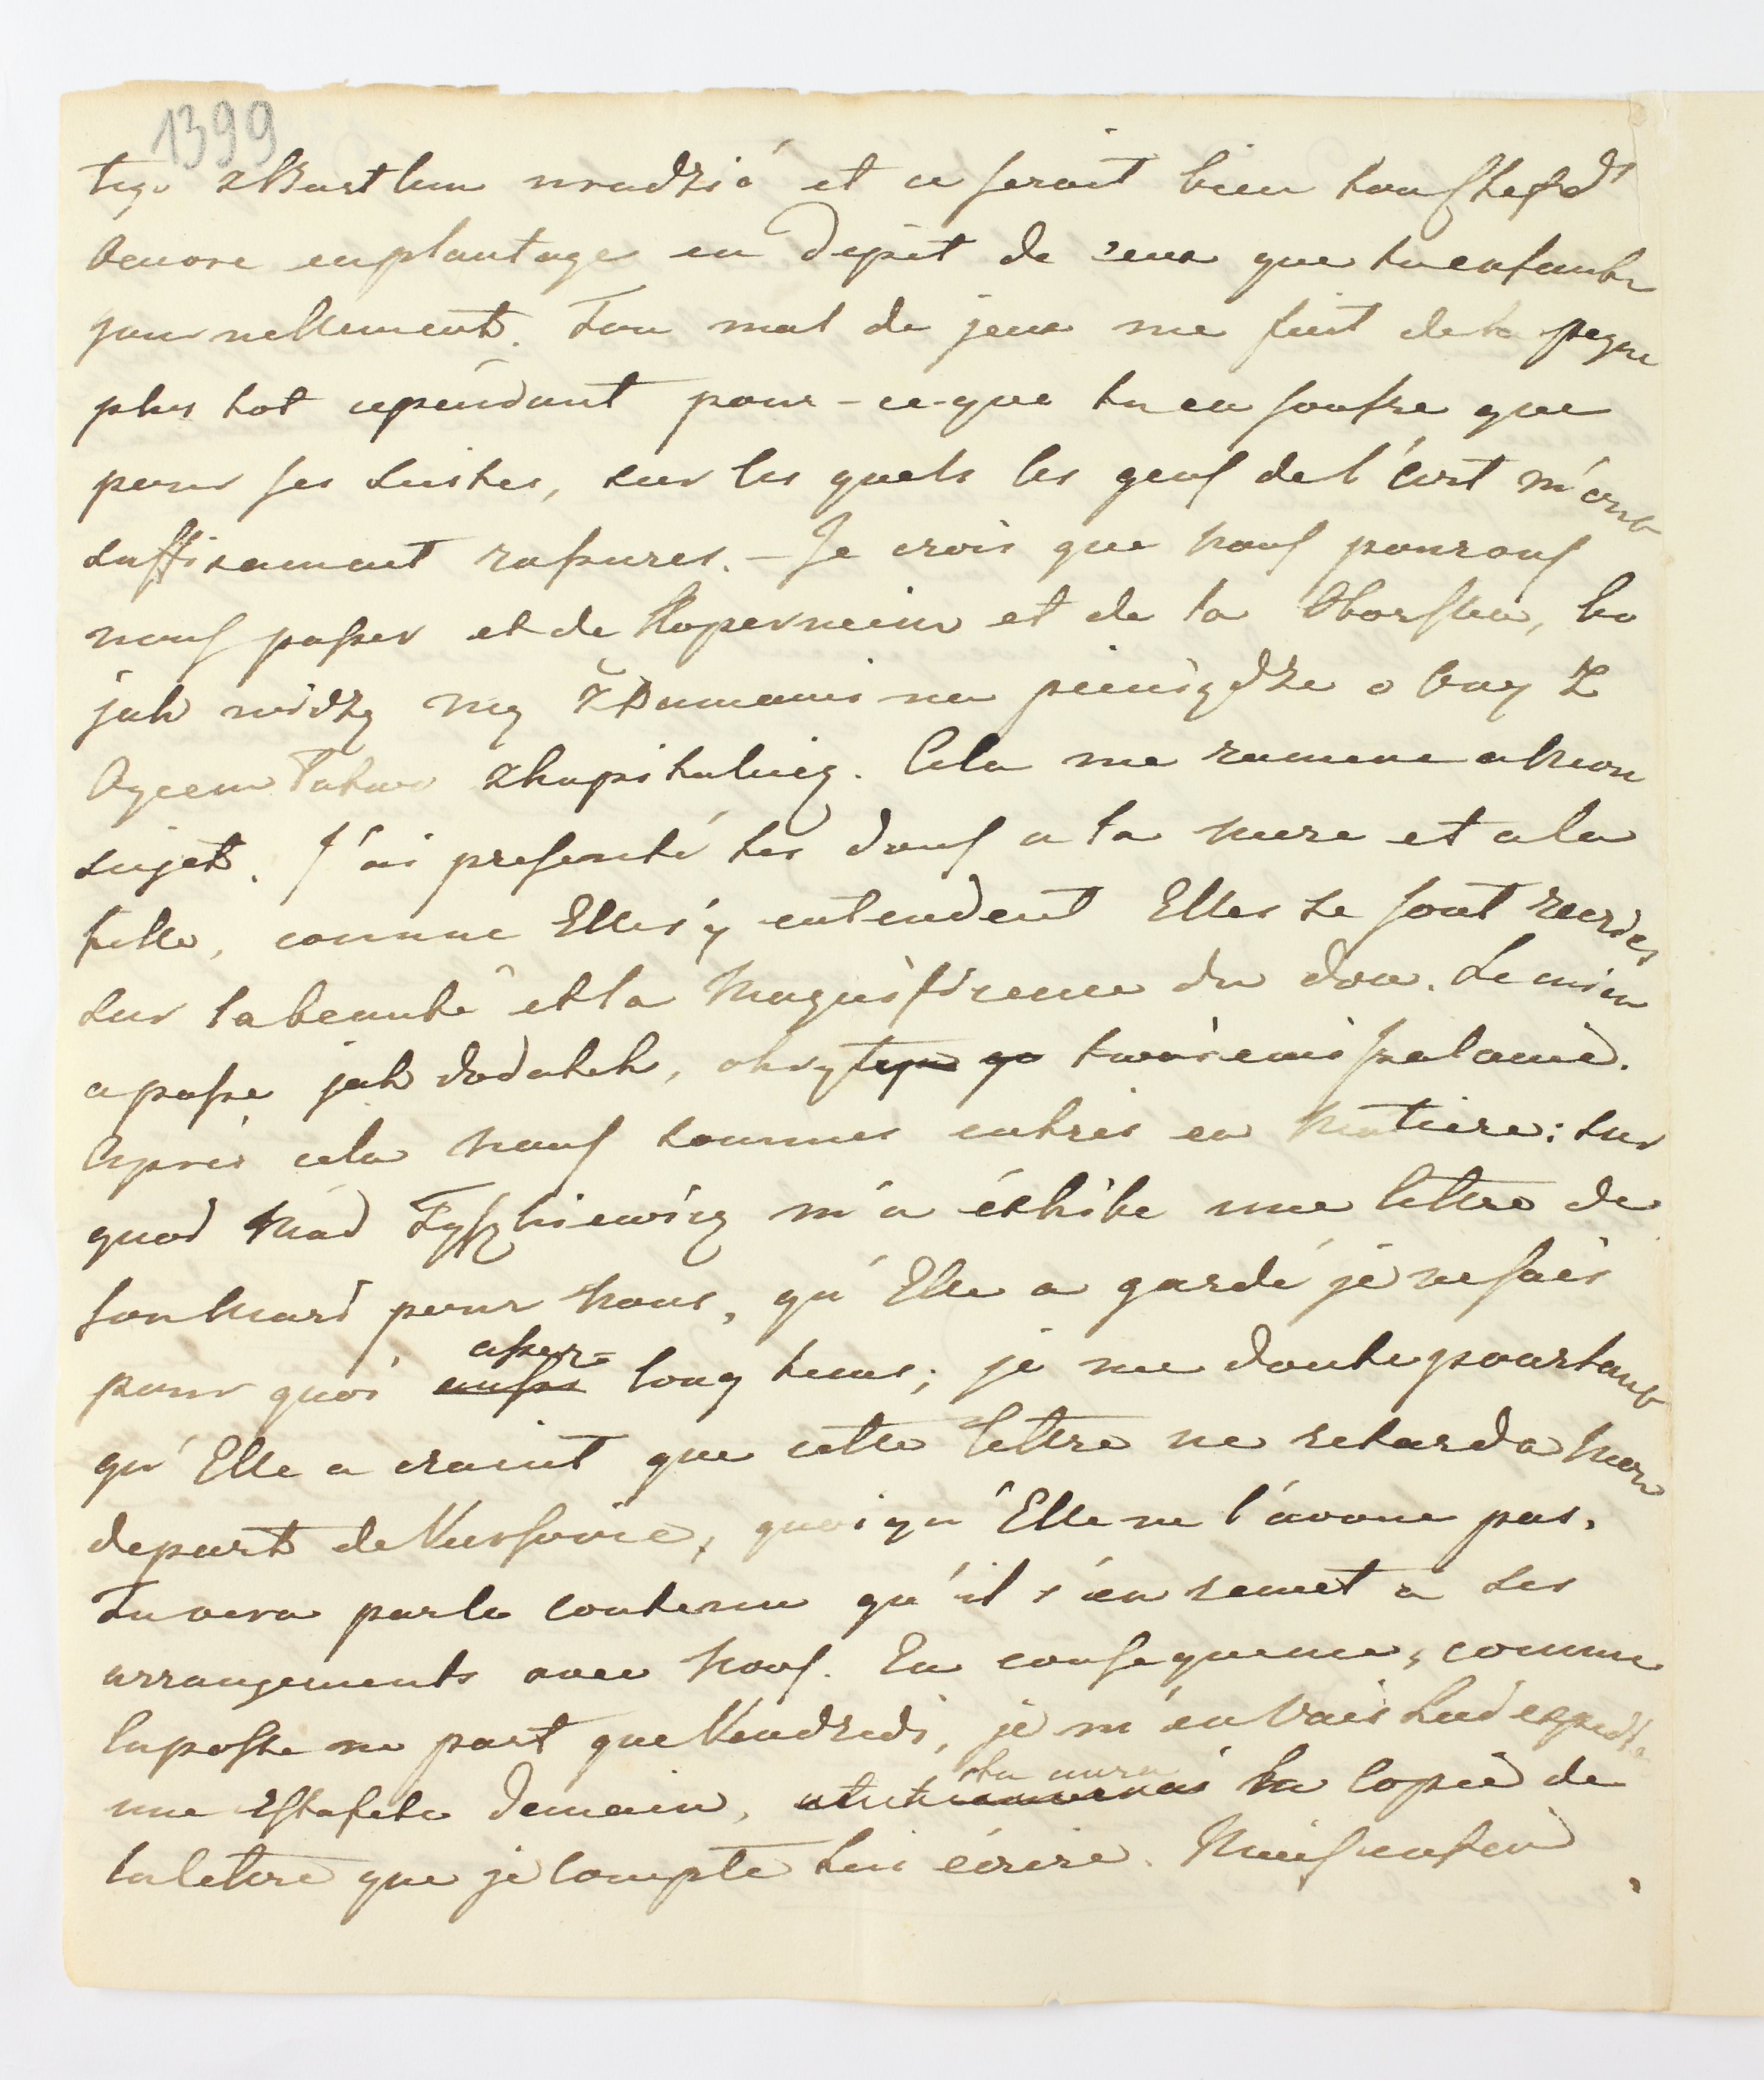 1399
tego z Bartkiem uradzić et ce serait bien ton Chef d'
Oeuvre en plantage en depit de ceux que tu enfante
journellement. Ton mal de jeux me fait de la peyne
plus tot cependant pour-ce-que tu en soufre que
pour ses suites, sur les quels les gens de l'art m'ont
suffisamment rassures. — Je crois que nous pourons
nous passer et de et de la bo
jak widzę my z na pieniądze o bay z
Oycem . Cela me ramene a mon
sujet. J'ai presenté tes dons a la mere et a la
fille, comme Elles s'y entendent Elles se sont recriés
sur la beauté et la magnificence du don. Le mien
a passé jak dodatek, okryty go twoiemi .
Après cela nous sommes entrés en matiere: sur
quoi Mad Tyszkiewicz m'a éxhibé une lettre de
son Mari pour nous, qu'Elle a gardé je ne sais
pour quoi aussi assez long tems; je me doute pourtant
qu'Elle a craint que cette lettre ne retarda mon
depart de Varsovie, quoi qu'Elle ne l'avoue pas.
Tu vera par le contenu qu'il s'en remet a ses
arrangements avec nous. En consequence, comme
la poste ne part que Vendredi, je m'en vais lui expedier
une Estafete demain, tu aura la copie de
la lettre que je compte lui écrire. Mais enfin